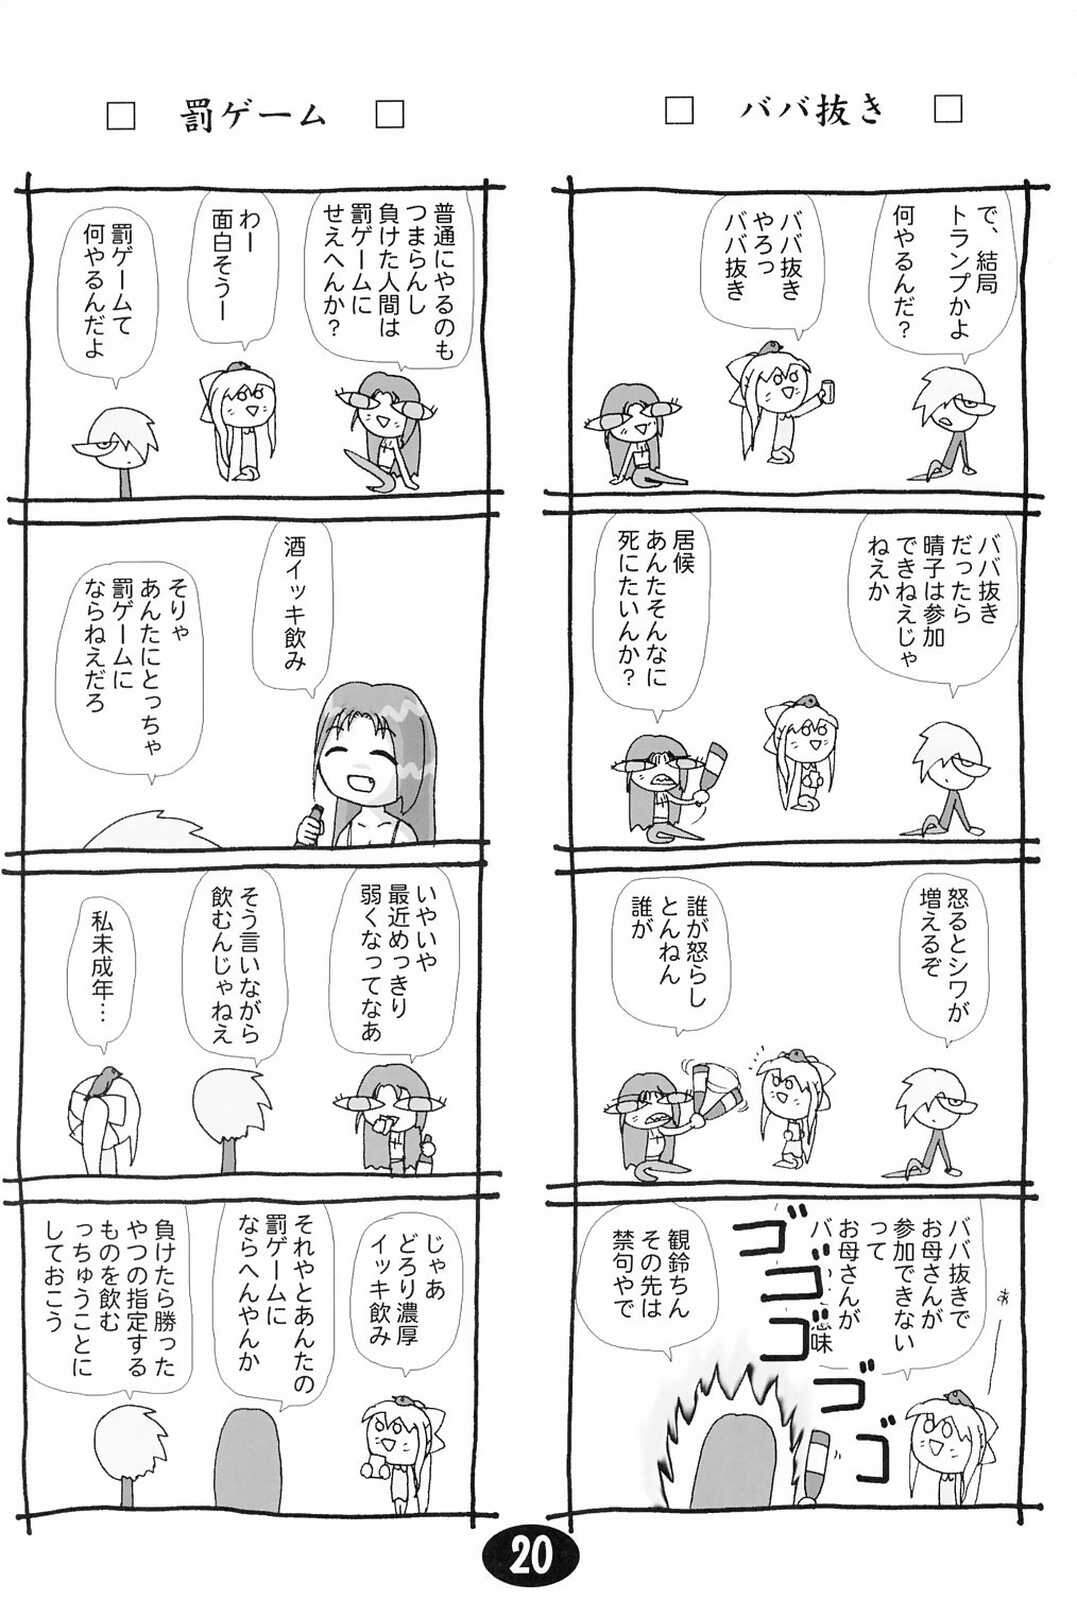 □ ババ抜き □
で、結局
トランプかよ
何やるんだ？
ババ抜き
やろっ
ババ抜き
ババ抜き
だったら
晴子は参加
できねえじゃ
ねえか
居候
あんたそんなに
死にたいんか？
怒るとシワが
増えるぞ
誰が怒らし
とんねん
誰が
ババ抜きで
お母さんが
参加できない
って
お母さんが
バ
意味
ゴゴゴゴゴ
観鈴ちん
その先は
禁句やで
□ 罰ゲーム □
普通にやるのも
つまらんし
負けた人間は
罰ゲームに
せえへんか？
わー
面白そうー
罰ゲームて
何やるんだよ
酒イッキ飲み
そりゃ
あんたにとっちゃ
罰ゲームに
ならねえだろ
いやいや
最近めっきり
弱くなってなあ
そう言いながら
飲むんじゃねえ
私未成年…
じゃあ
どろり濃厚
イッキ飲み
それやとあんたの
罰ゲームに
ならへんやんか
負けたら勝った
やつの指定する
ものを飲む
っちゅうことに
しておこう
20